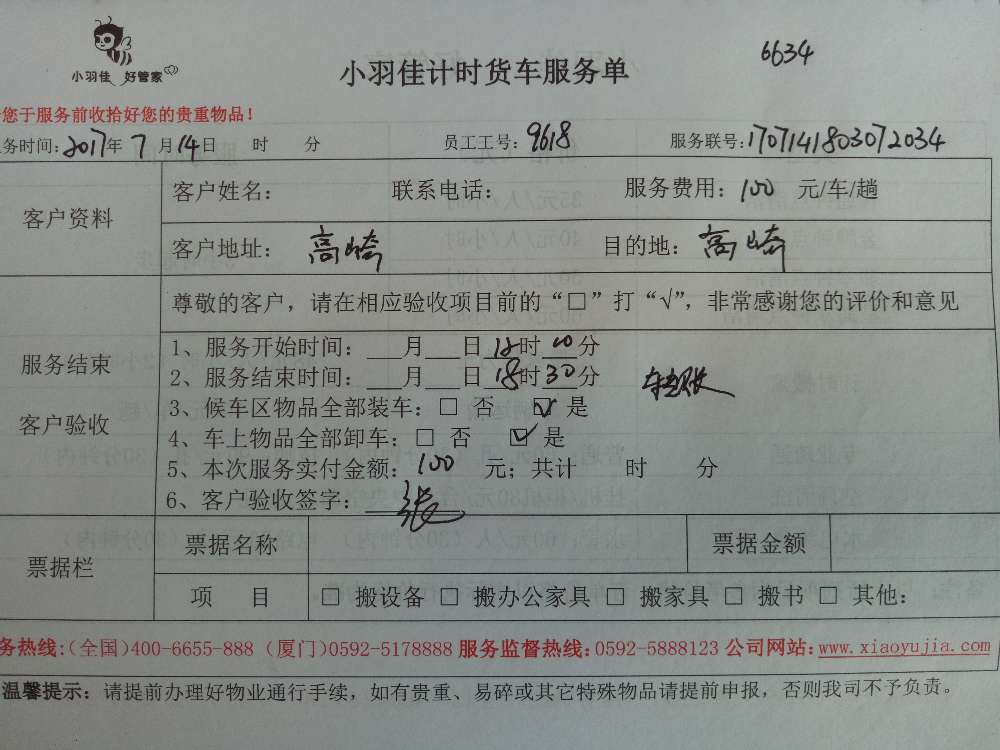 小羽佳 好管家
小羽佳计时货车服务单
6634
您于服务前收拾好您的贵重物品！
务时间：2017年 7 月 14日 时 分 员工工号：9618 服务联号：1707141803072034
客户资料
客户姓名： 联系电话： 服务费用：100 元/车/趟
客户地址： 高崎 目的地： 高崎
服务结束
客户验收
尊敬的客户，请在相应验收项目前的“□”打“√”，非常感谢您的评价和意见
1、服务开始时间：___月___日18时00分
2、服务结束时间：___月___日18时30分
3、候车区物品全部装车：□ 否 ☑ 是
4、车上物品全部卸车：□ 否 ☑ 是
5、本次服务实付金额：100 元；共计 时 分
6、客户验收签字：张
票据栏
票据名称 票据金额
项 目 □ 搬设备 □ 搬办公家具 □ 搬家具 □ 搬书 □ 其他：
务热线:(全国)400-6655-888 (厦门)0592-5178888 服务监督热线:0592-5888123 公司网站:www.xiaoyujia.com
温馨提示：请提前办理好物业通行手续，如有贵重、易碎或其它特殊物品请提前申报，否则我司不予负责。